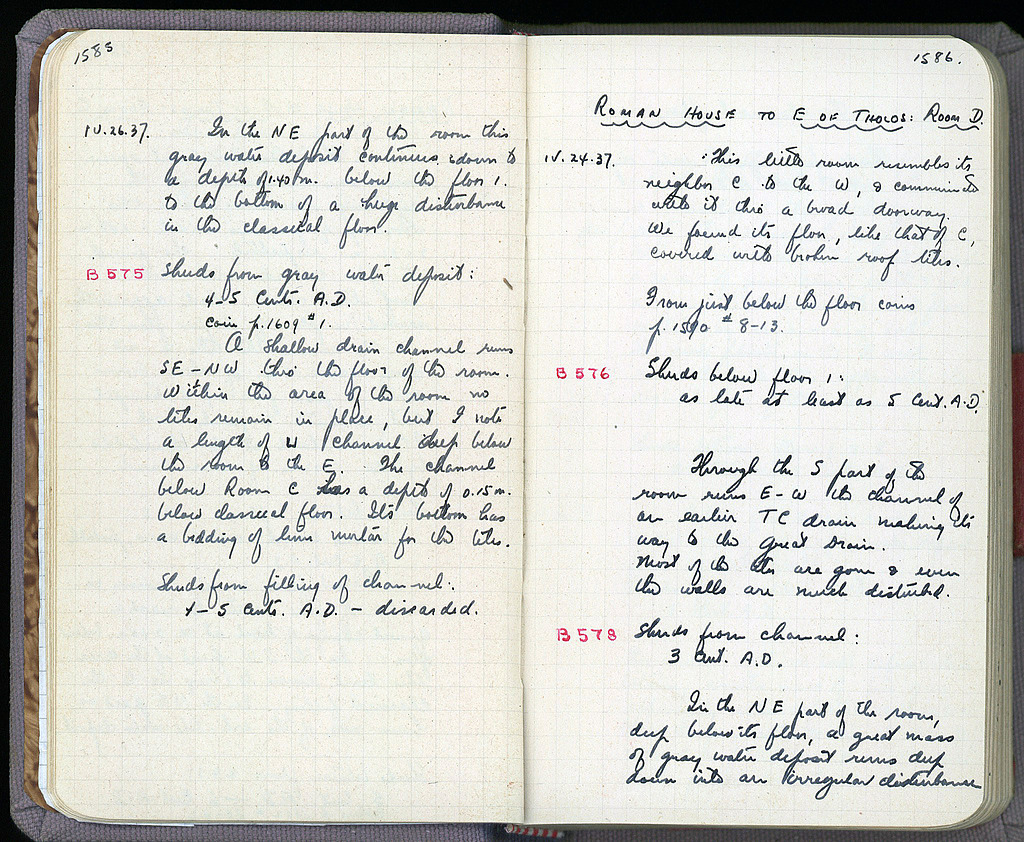 1585
IV.26.37. In the NE part of the room this
gray water deposit continues down to
a depth of 1.40 m. below the floor 1.
to the bottom of a huge disturbance
in the classical floor.
B 575 Sherds from gray water deposit:
4-5 Cents. A.D.
coin p.1609 #1.
A shallow drain channel runs
SE-NW thro the floor of the room.
Within the area of the room no
tiles remain in place, but I note
a length of channel deep below
the room to the E. The channel
below Room C has a depth of 0.15 m.
below classical floor. Its bottom has
a bedding of lime mortar for the tiles.
Sherds from filling of channel:
4-5 Cents. A.D. - discarded.
1586.
ROMAN HOUSE TO E OF THOLOS: ROOM D.
IV.24.37. This little room resembles its
neighbor C to the W, & communicates
with it thro a broad doorway.
We found its floor, like that of C,
covered with broken roof tiles.
From just below the floor coins
p. 1590 # 8-13.
B 576 Sherds below floor 1:
as late at least as 5 Cent. A.D.
Through the S part of the
room runs E-W the channel of
an earlier TC drain making its
way to the Great Drain.
Most of the tiles are gone & even
the walls are much disturbed.
B 578 Sherds from channel:
3 Cent. A.D.
In the NE part of the room,
deep below its floor, a great mass
of gray water deposit runs deep
down into an irregular disturbance